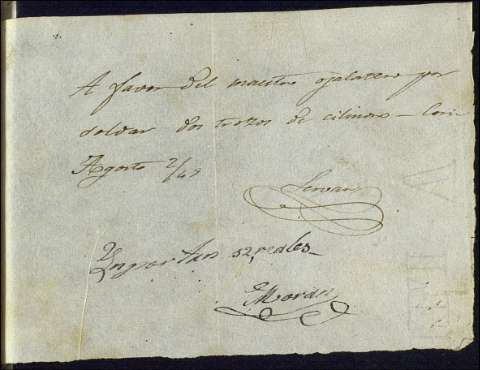 A favor del maestro ojalatero por
soldar dos trozos de cilindro – Coria
Agosto 2/49
Servan
Ymportan 52, reales_
Moran